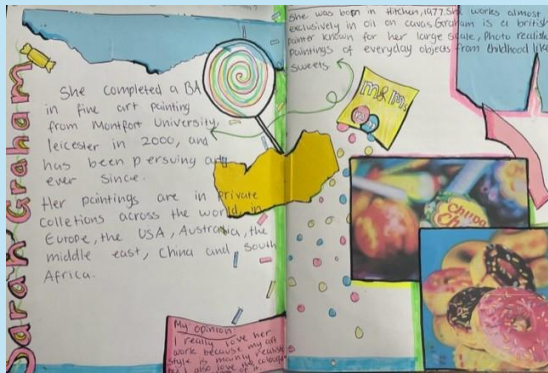 Sarah Graham
She completed a BA
in fine art painting
from Montfort University,
leicester in 2000, and
has been persuing art
ever since.
Her paintings are in Private
colletions across the world, in
Europe, the USA, Australia, the
middle east, China and South
Africa.
My opinion:
I really love her
work because my art
style is mainly realis
but I also love the
She was born in Hitchen, 1977. She works almost
exclusively in oil on cavas. Graham is a british
painter known for her large scale, Photo realistic
paintings of everyday objects from Childhood like
sweets.
m&m
Chupa
Ch